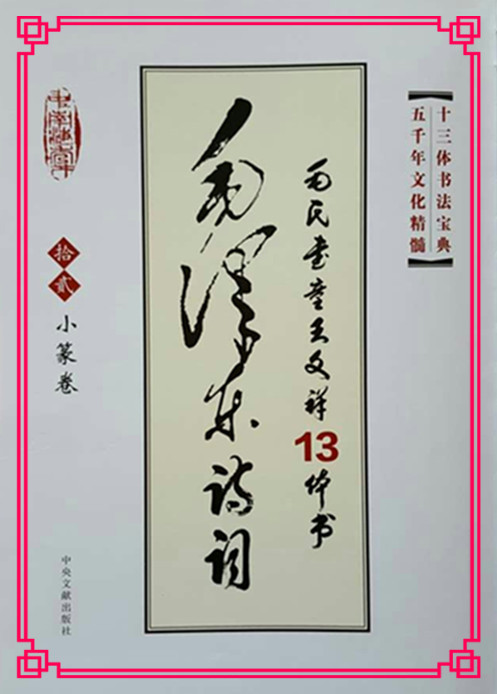 十三体书法宝典
五千年文化精髓
毛氏书童王文祥13体书
毛泽东诗词
拾贰
小篆卷
中央文献出版社